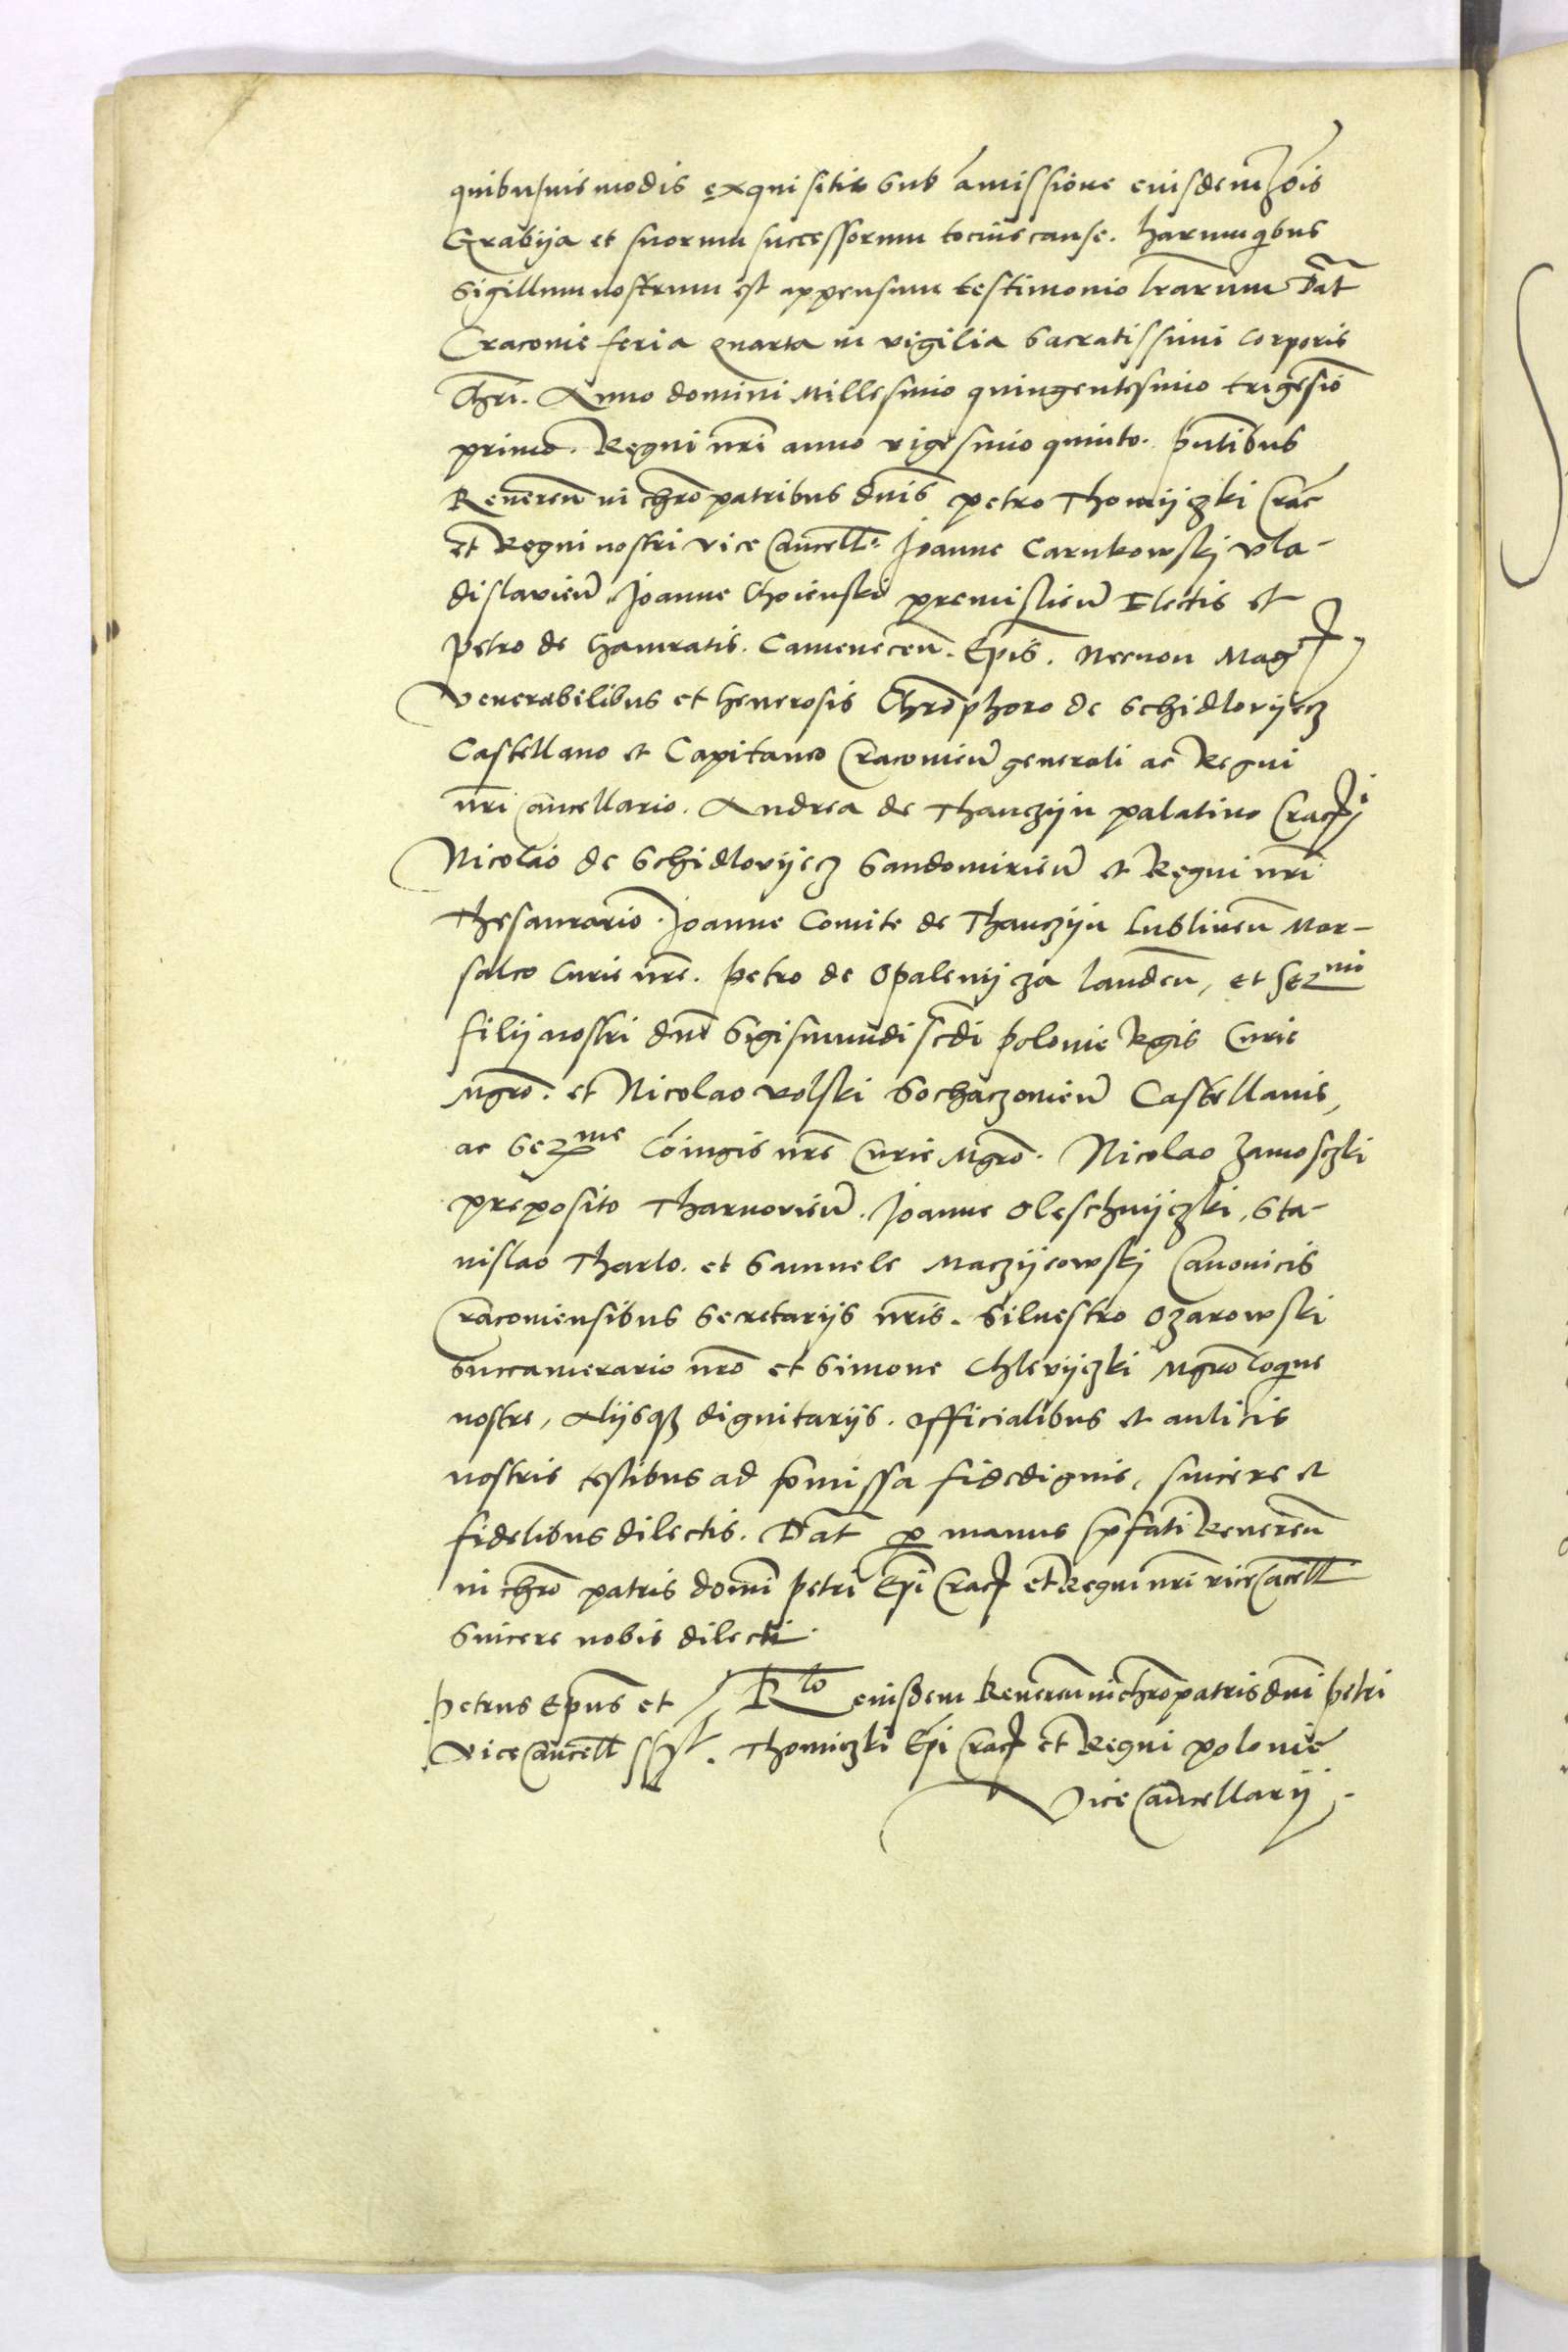 quibusuis modis exquisitis sub amissione eiusdem Jois
Grabyia et suorum successorum tocius cause. harum qibus
Sigillum nostrum est appensum testimonio lrarum Dat
Cracouie feria quarta in vigilia Sacratissimi Corporis
Chri. Anno domini Millesimo quingentesimo trigesio
primo. Regni nri anno vigesimo quinto. pntibus
Reueren in chro patribus dnis petro Thomyiczki Crac
et Regni nostri vice Cancell. Joanne Carnkowskj vla-
dislavien Joanne Choienski premislien Electis et
petro de Gamratis. Camenecen. Epis. Necnon Mag
Venerabilibus et Generosis Chrophoro de Schidlovyiecz
Castellano et Capitaneo Cracouien generali ac Regni
nri Cancellario. Andrea de Thanczyin palatino Crac
Nicolao de Schidlovyiecz Sandomirien et Regni nri
Thesaurario. Joanne Comite de Thanczyin Lublinen Mar-
salco Curie nre. petro de Opalenyicza landen, et Sermi
filij nostri dni Sigismundi scdi polonie Regis Curie
Mgro. et Nicolao volski Sochaczouien Castellanis,
ac Serme Coniugis nre Curie Mgro. Nicolao Zamosczki
preposito Tharnovien. Joanne Oleschnyiczki, Sta-
nislao Tharlo. et Samuele Maczyieowskj Canonicis
Cracouiensibus Secretarijs nris. Siluestro Ozarowski
Succamerario nro et Simone Chlevyiczki Mgro Coqine
nostre, Alijsqz dignitarijs. officialibus et aulicis
nostris testibus ad pmissa fidedignis, sincere et
fidelibus dilectis. Dat p manus pfati Reueren
in chro patris domi petri Epi Crac et Regni nri vice Cacell
Sincere nobis dilecti.
petrus Epus et
vice Cancell sspt.
Rlo eiusdem Reueren in chro patris dni petri
Thomiczki Epi Crac et Regni polonie
Vice Cancellarij.